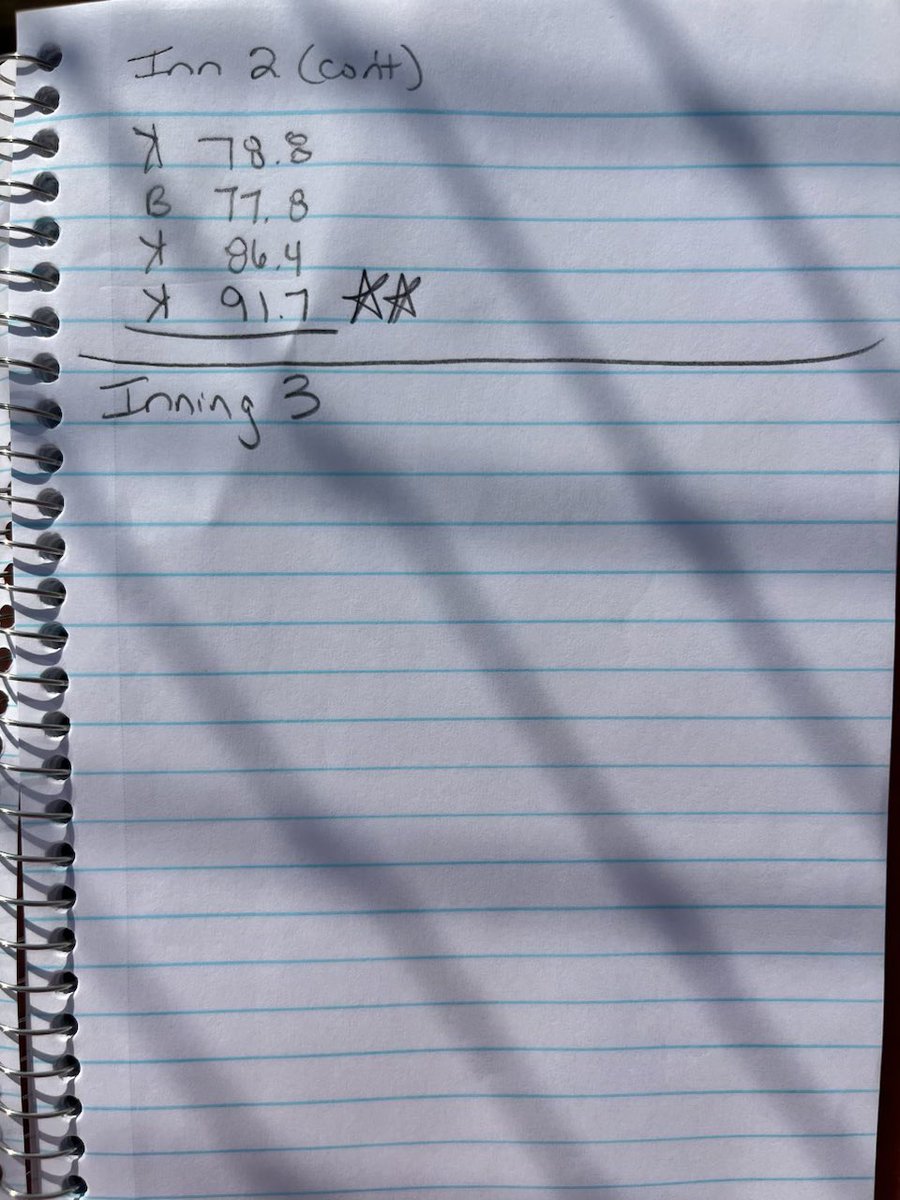 Inn 2 (con't)
ꓘ 78.8
B 77.8
ꓘ 86.4
ꓘ 91.7 ☆☆
Inning 3